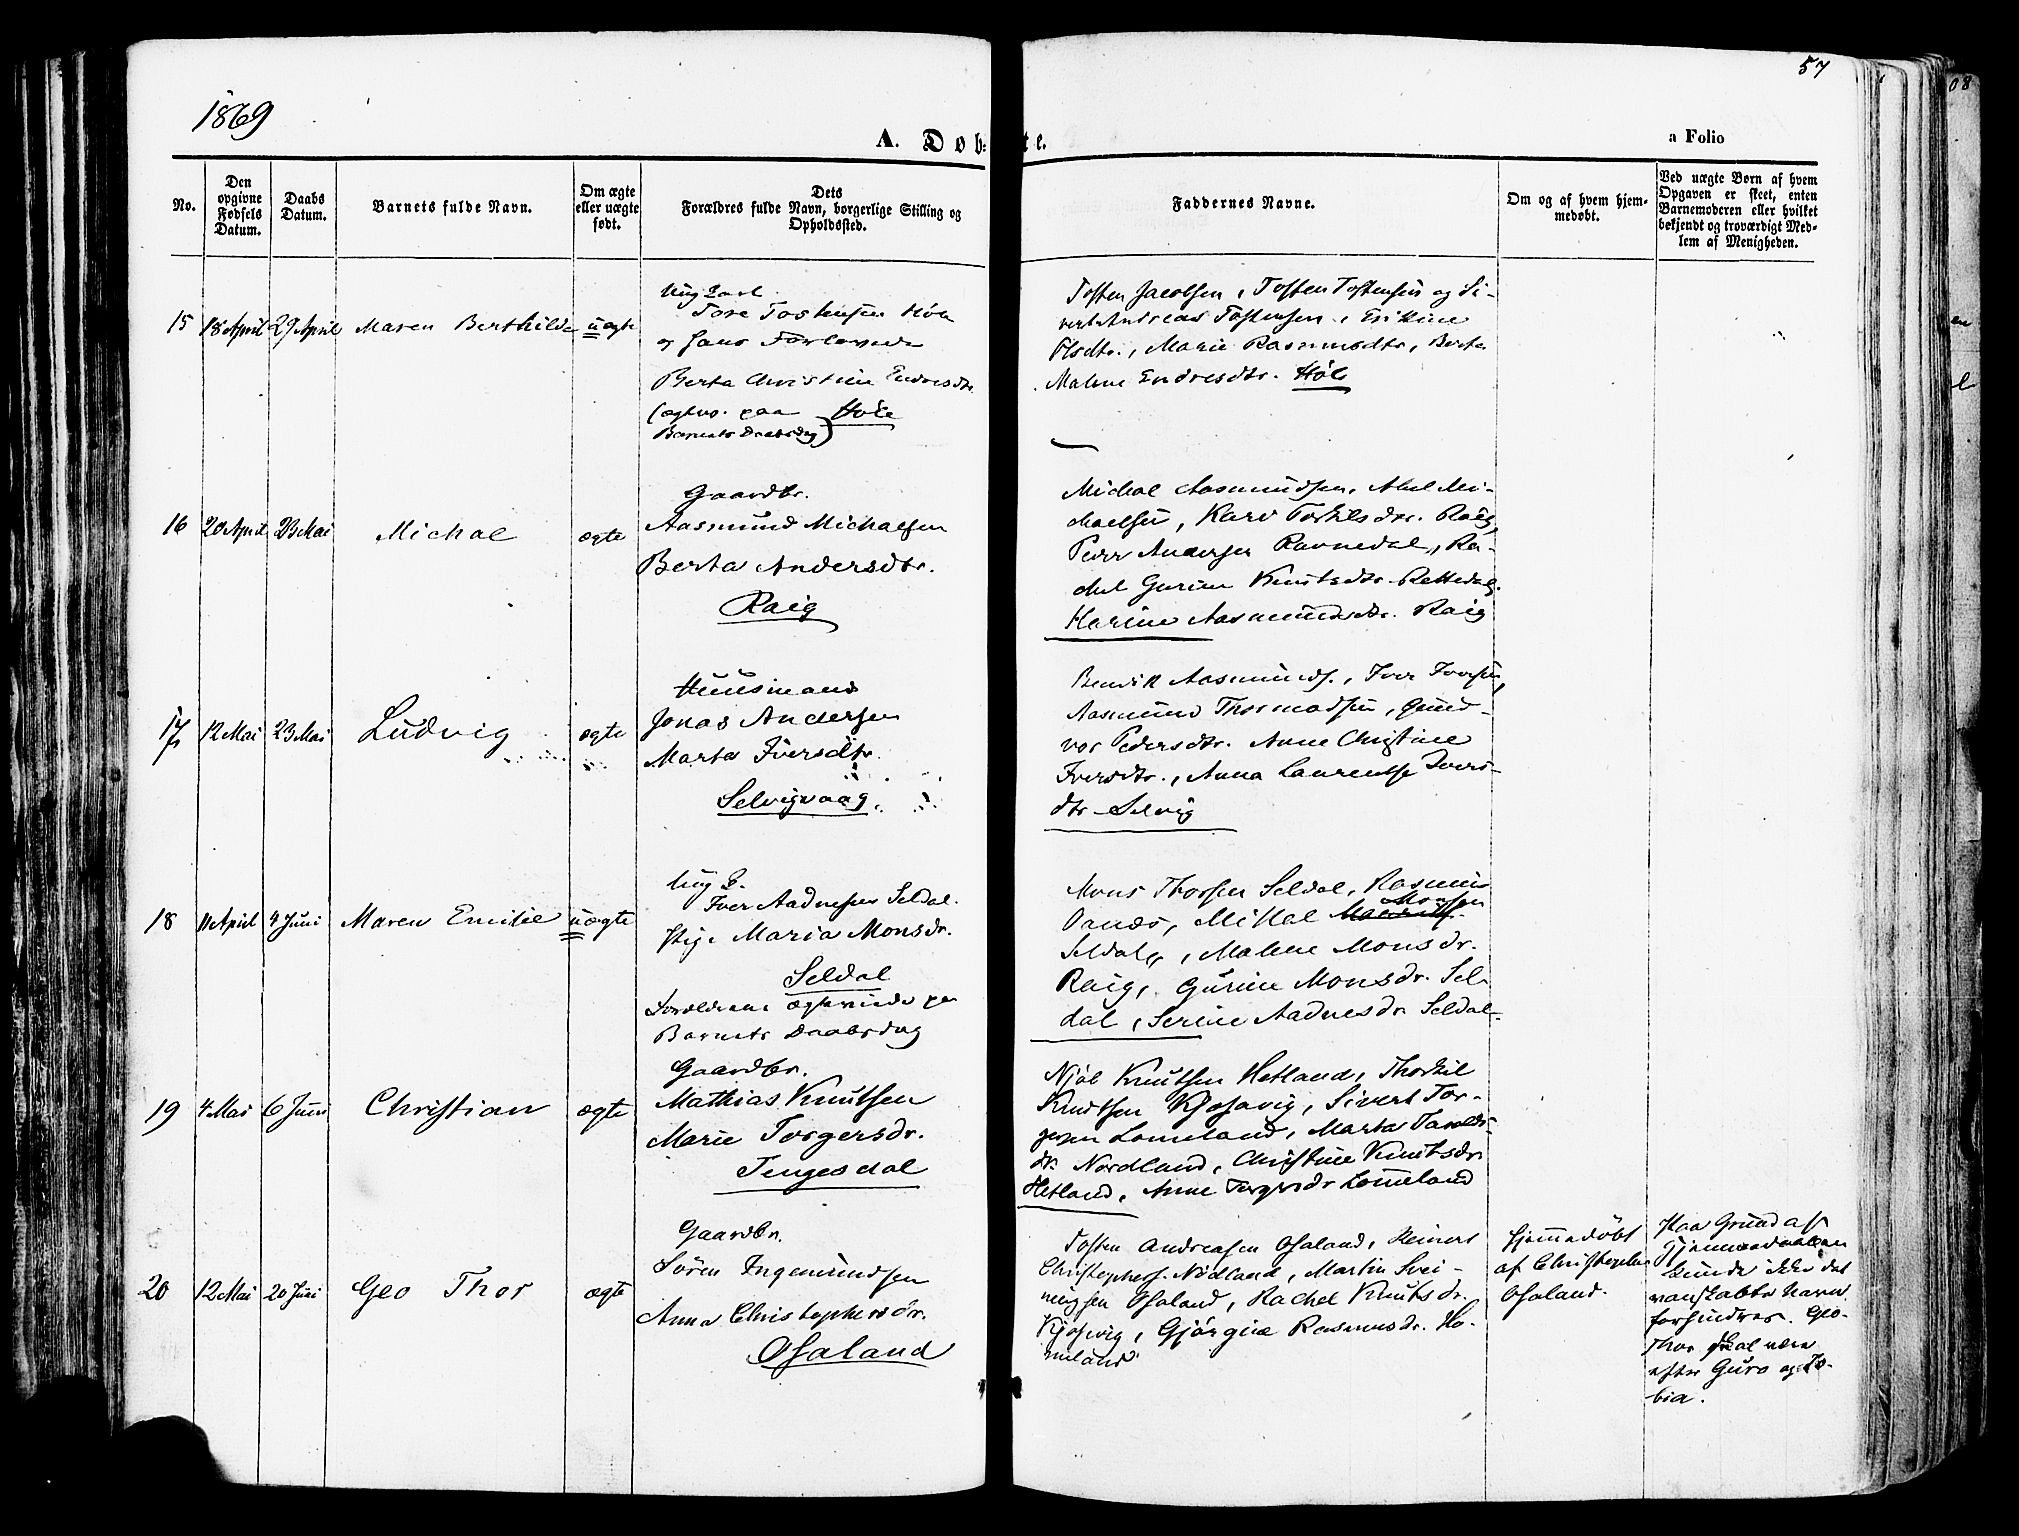 1869
57
A. Døbte.
a Folio
No.
Den
opgivne
Fødsels
Datum.
Daabs
Datum.
Barnets fulde Navn.
Om ægte
eller uægte
født.
Dets
Forældres fulde Navn, borgerlige Stilling og
Opholdssted.
Faddernes Navne.
Om og af hvem hjem-
medøbt.
Ved uægte Børn af hvem
Opgaven er skeet, enten
Barnemoderen eller hvilket
bekjendt og troværdigt Med-
lem af Menigheden.
15 18 April 29 April Maren Berthilde uægte
Ungkarl
Tore Tostensen Høle
og hans Forlovede
Berta Christine Endresdtr.
(ægtev. paa Høle
Barnets Daabsdag)
Tosten Jacobsen, Tosten Tostensen og Si-
vert Andreas Tostensen,
Olsdtr., Marie Rasmusdtr, Berta
Malene Endresdtr. Høle
16 20 April 23 Mai Michal ægte
Gaardbr.
Aasmund Michalsen
Berta Andersdtr.
Raig
Michal Aasmundsen, Abel Mi-
chaelsen, Karv Torkilsdtr. Raig,
Peder Andersen Ravnedal, Ra-
chel Gurine Knutsdtr. Rettedal,
Harine Aasmundsdtr. Raig
17 12 Mai 23 Mai Ludvig ægte
Huusmand
Jonas Andersen
Marta Iversdtr.
Selvigvaag.
Bendik Aasmunds., Iver Iversen,
Aasmund Thormodsen, Gund-
vor Pedersdtr. Anne Christine
Iversdtr., Anna Laurentse Ivers-
dtr Selvig
18 11 April 4 Juni Maren Emilie uægte
Ungk.
Iver Aadnesen Seldal.
Pige Maria Monsdr.
Seldal
Forældrene ægteviede paa
Barnets Daabsdag
Mons Thorsen Seldal, Rasmus
Monsen
Danes, Mikkal
Seldal, Malene Monsdr.
Raig, Gurine Monsdr. Sel-
dal, Serine Aadnesdr Seldal.
19 4 Mai 6 Juni Christian ægte
Gaardbr.
Mathias Knutsen
Marie Torgersdr.
Tengesdal
Njål Knutsen Hetland, Thorkil
Knutsen Kjosavig, Sivert Tor-
gersen Lomeland, Marta Taralds-
dr. Nordland, Christine Knutsdr
Hetland, Anne Torgersdr Lomeland
20 12 Mai 20 Juni Geo Thor ægte
Gaardbr.
Sören Ingemundsen
Anna Christophersdr.
Osaland
Tosten Andreasen Osaland, Reinert
Christophers. Nødland, Martin Svei-
ningsen Osaland, Rachel Knutsdr.
Kjosavig, Gjørgine Rasmusdr. Ho-
meland
Hjemmedøbt
af Christopher
Osaland.
Paa Grund af
Hjemmedaaben
kunde ikke det
vanskabte Navn
forhindres. Geo-
Thor skal være
efter Guro og To-
bia.